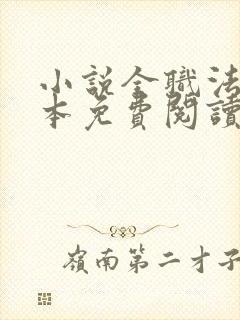 小說全職法
本免費閱讀
嶺南第二才子